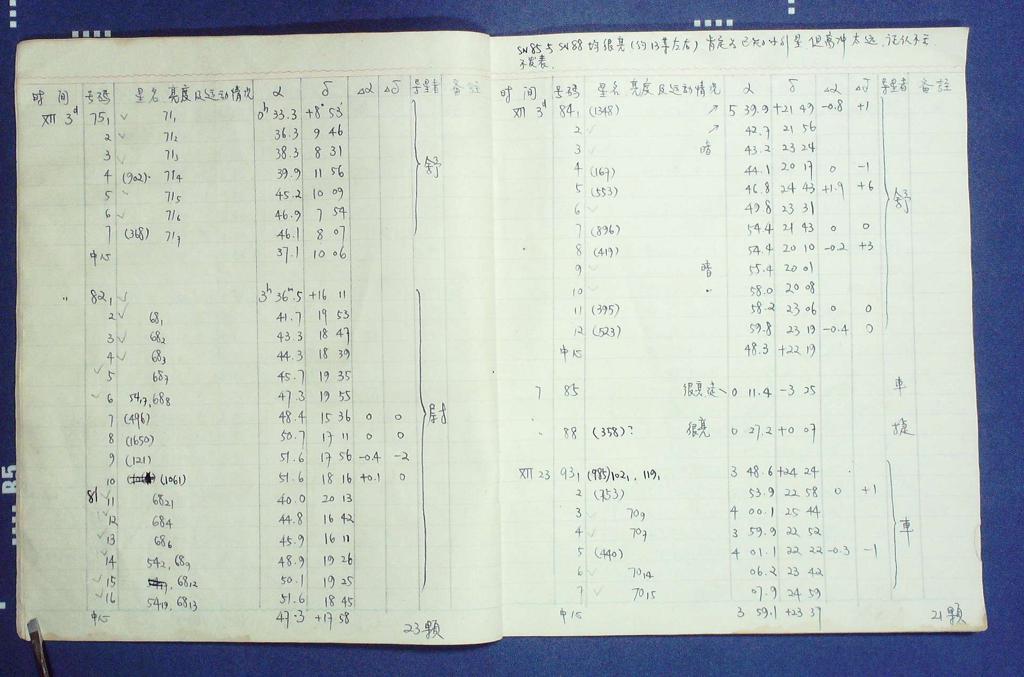 时间 号码 星名 亮度及运动情况 α δ Δα Δδ 导星者 备註
XII 3d 75₁ ✓ 71₁ 0h 33.3 +8° 53′
2 ✓ 71₂ 36.3 9 46
3 ✓ 71₃ 38.3 8 31
4 (902)· 71₄ 39.9 11 56 舒
5 ✓ 71₅ 45.2 10 09
6 ✓ 71₆ 46.9 7 54
7 (368) 71₇ 46.1 8 07
中心 37.1 10 06
" 82₁ ✓ 3h 36m.5 +16 11
2 ✓ 68₁ 41.7 19 53
3 ✓ 68₂ 43.3 18 47
4 ✓ 68₃ 44.3 18 39
✓ 5 68₇ 45.7 19 35
✓ 6 54₁₇,68₈ 47.3 19 55
7 (496) 48.4 15 36 0 0
8 (1650) 50.7 17 11 0 0
9 (121) 51.6 17 56 -0.4 -2
10 (1061) 51.6 18 16 +0.1 0
81 11 68₂₁ 40.0 20 13
✓ 12 68₄ 44.8 16 42
✓ 13 68₆ 45.9 16 11
✓ 14 54₂, 68₉ 48.9 19 26
✓ 15 68₁₂ 50.1 19 25
✓ 16 54₁₉, 68₁₃ 51.6 18 45
中心 47.3 +17 58
23颗
SN85与SN88均很亮(约13等左右)肯定为已知小行星但离冲太远,证认不云
不发表.
时间 号码 星名 亮度及运动情况 α δ Δα Δδ 导星者 备註
XII 3d 84₁ (1348) ↗ 5 39.9 +21 49 -0.8 +1
2 ✓ ↗ 42.7 21 56
3 ✓ 暗 43.2 23 24
4 (167) 44.1 20 17 0 -1
5 (553) 46.8 24 43 +1.9 +6 舒
6 ✓ 49.8 23 31
7 (896) 54.4 21 43 0 0
8 (419) 54.4 20 10 -0.2 +3
9 ✓ 暗 55.4 20 01
10 ✓ " 58.0 20 08
11 (395) 58.2 23 06 0 0
12 (523) 59.8 23 19 -0.4 0
中心 48.3 +22 19
7 85 0 11.4 -3 25 車
" 88 (358)? 很亮 0 27.2 +0 07
XII 23 93₁ (985)102₁, 119₁ 3 48.6 +24 24
2 (753) 53.9 22 58 0 +1
3 ✓ 70₉ 4 00.1 25 44
4 ✓ 70₇ 3 59.9 22 52 車
5 (440) 4 01.1 22 22 -0.3 -1
6 ✓ 70₁₄ 06.2 23 42
7 ✓ 70₁₅ 07.9 24 59
中心 3 59.1 +23 37
21颗
B5